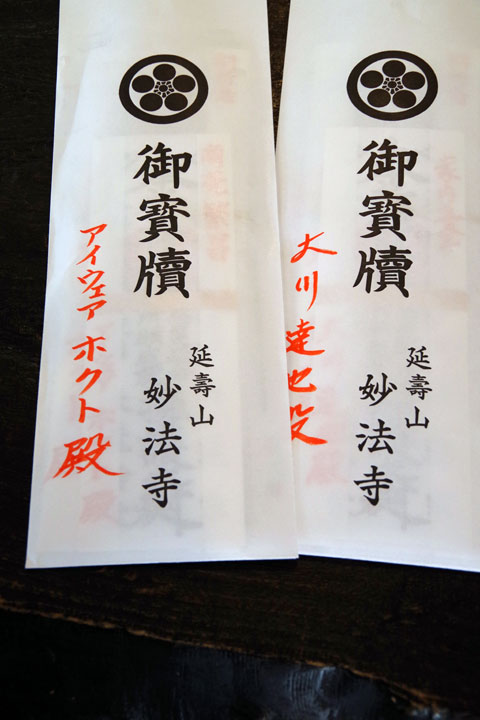 御寶牘
延壽山
妙法寺
アイウェア ホクト 殿
御寶牘
延壽山
妙法寺
大川達也殿